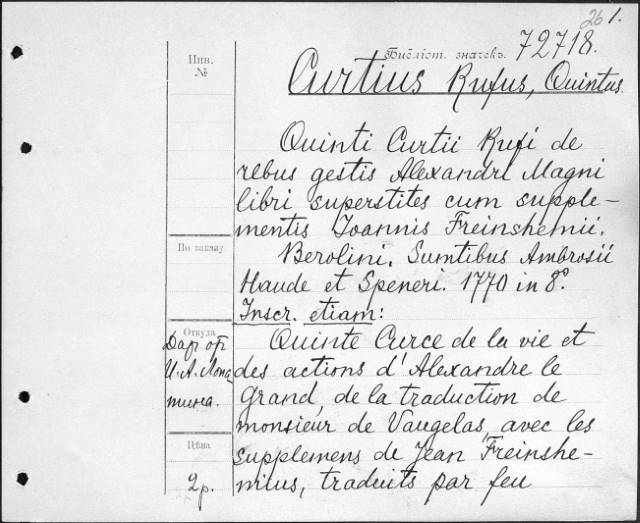 26 1.
Библіот. значекъ. 72718.
Инв.
№
Curtius Rufus, Quintus.
Quinti Curtii Rufi de
rebus gestis Alexandri Magni
libri superstites cum supple-
mentis Joannis Freinshemii.
По заказу
Berolini. Sumtibus Ambrosii
Haude et Speneri. 1770 in 8º
Inscr. etiam:
Откуда
Даръ отъ
И. А. Лопа-
тина.
Quinte Curce de la vie et
des actions d'Alexandre le
Grand, de la traduction de
monsieur de Vaugelas, avec les
supplemens de Jean Freinshe-
mius, traduits par feu
Цѣна
2р.